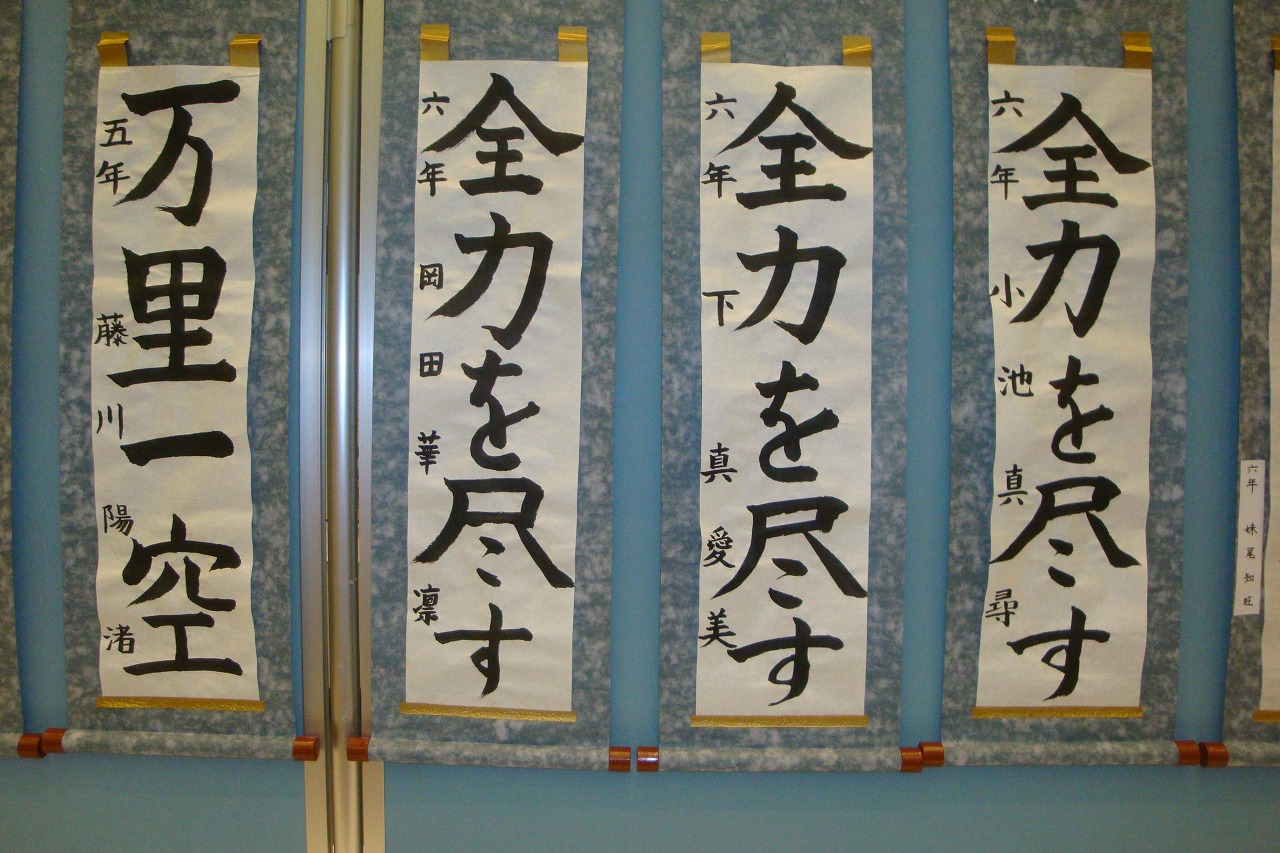 全力を尽す
六年 小池真尋
全力を尽す
六年 下真愛美
全力を尽す
六年 岡田華凛
万里一空
五年 藤川陽渚
六年 妹尾知旺